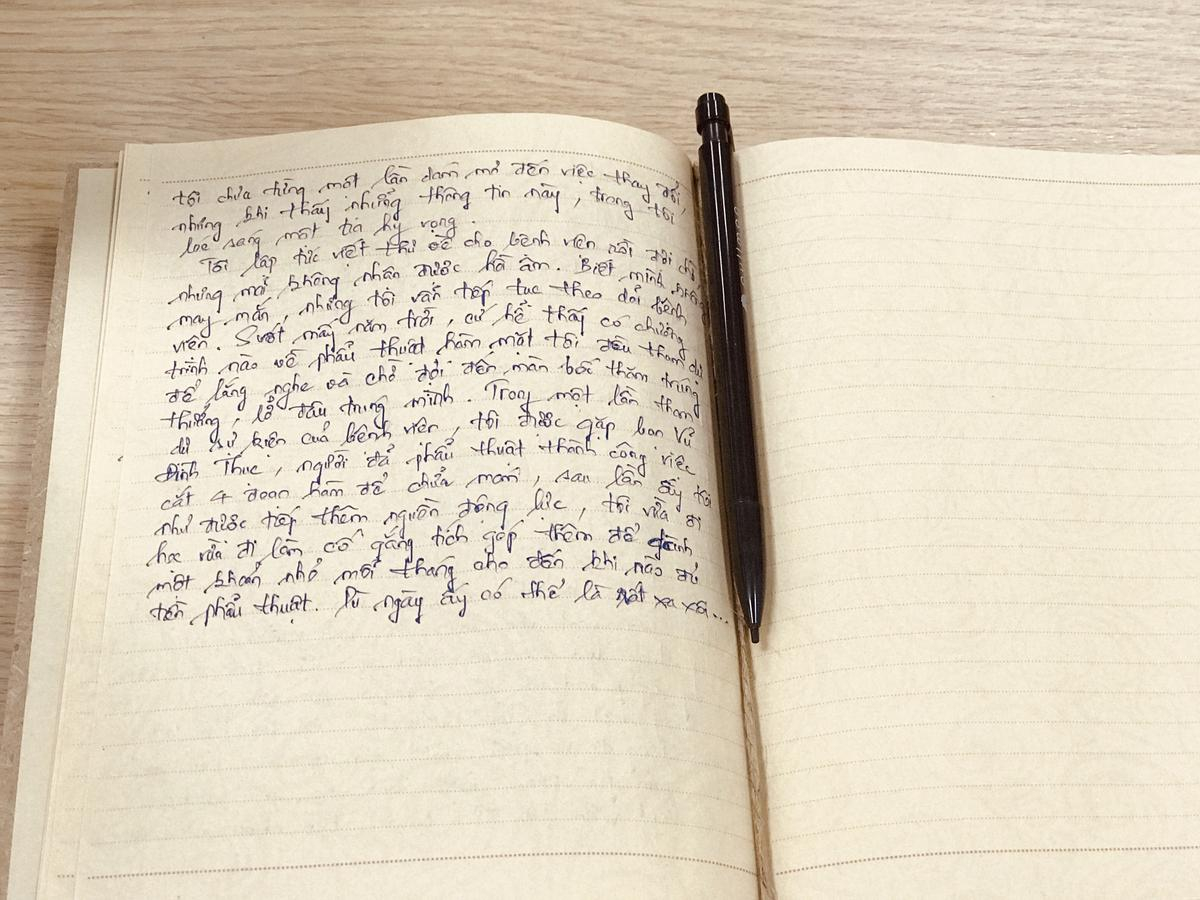 tôi chưa từng một lần dám mơ đến việc thay đổi,
nhưng khi thấy những thông tin này, trong tôi
loé sáng một tia hy vọng.
Tôi lập tức viết thư về cho bệnh viện rồi đợi chờ
nhưng mãi không nhận được hồi âm. Biết mình không
may mắn, nhưng tôi vẫn tiếp tục theo dõi bệnh
viện. Suốt mấy năm trời, cứ hễ thấy có chương
trình nào về phẫu thuật hàm mặt tôi đều tham dự
để lắng nghe và chờ đợi đến màn bốc thăm trúng
thưởng, lỡ đâu trúng mình. Trong một lần tham
dự sự kiện của bệnh viện, tôi được gặp bạn Vũ
Đình Thức, người đã phẫu thuật thành công việc
cắt 4 đoạn hàm để chữa móm, sau lần ấy tôi
như được tiếp thêm nguồn động lực, tôi vừa đi
học vừa đi làm cố gắng tích góp thêm để dành
một khoản nhỏ mỗi tháng cho đến khi nào đủ
tiền phẫu thuật. Dù ngày ấy có thể là rất xa xôi...